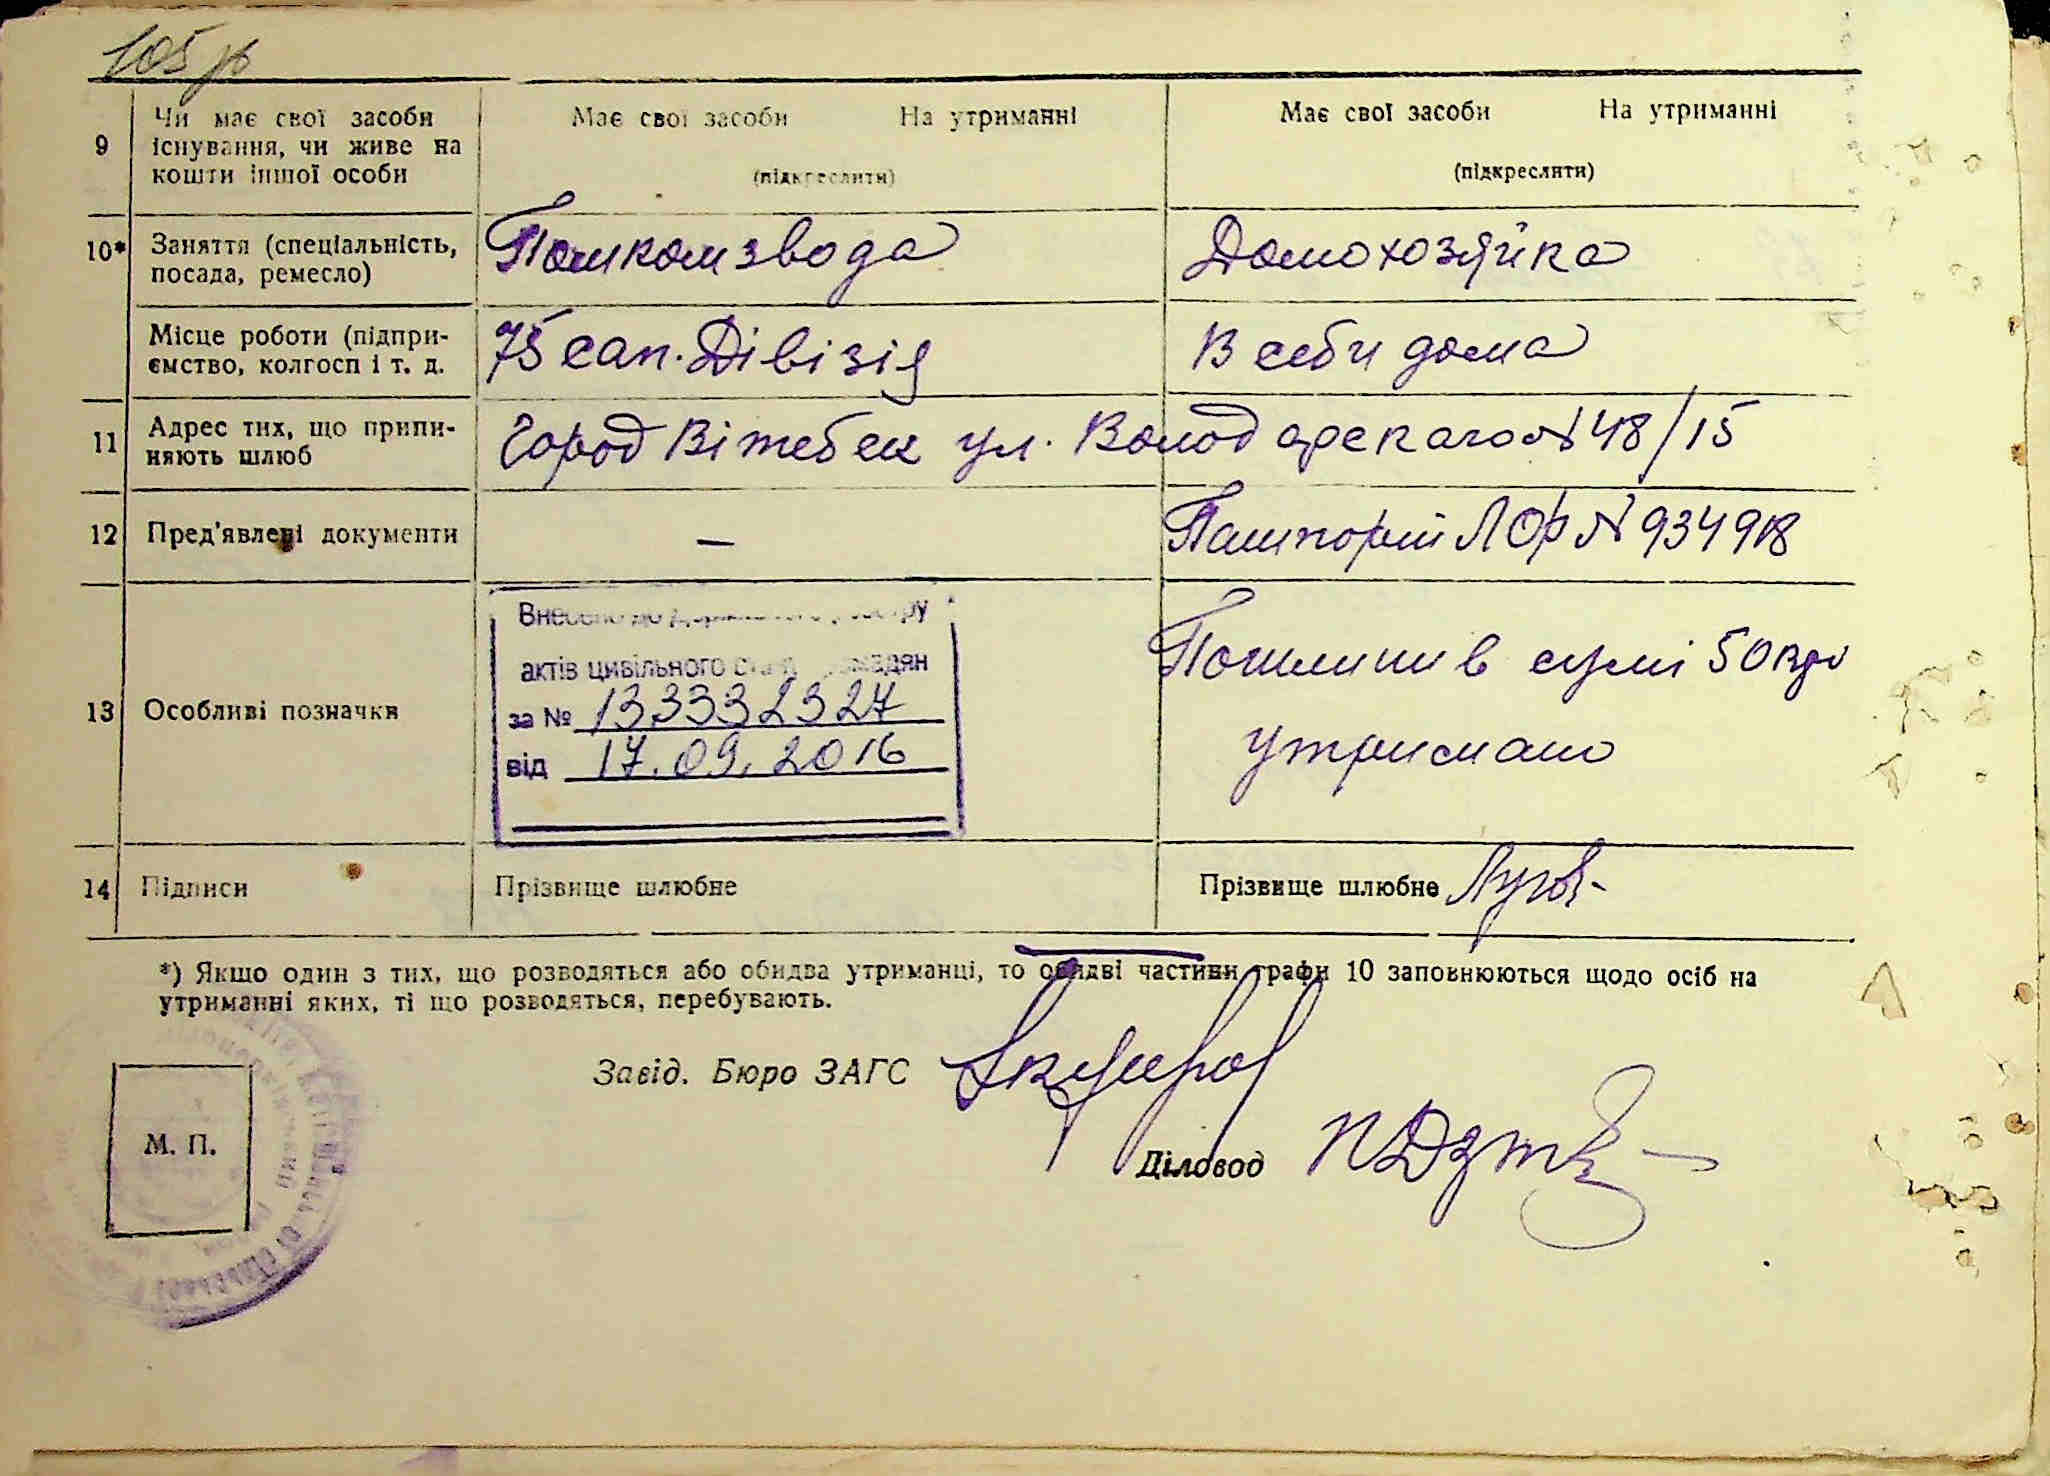 105
9 Чи має свої засоби існування, чи живе на кошти іншої особи
Має свої засоби На утриманні
(підкреслити)
Має свої засоби На утриманні
(підкреслити)
10* Заняття (спеціальність, посада, ремесло)
Помкомзвода
Домохозяйка
Місце роботи (підприємство, колгосп і т. д.
75 сап. Дівізія
В себи дома
11 Адрес тих, що припиняють шлюб
Город Вітебск ул. Володарского № 48/15
12 Пред'явлені документи
—
Пашпорт ЛОР № 934918
13 Особливі позначки
Внесено до Державного реєстру
актів цивільного стану громадян
за № 13332327
від 17.09.2016
Пошлини в сумі 50 крб
утримано
14 Підписи
Прізвище шлюбне
Прізвище шлюбне
*) Якщо один з тих, що розводяться або обидва утриманці, то обидві частини графи 10 заповнюються щодо осіб на
утриманні яких, ті що розводяться, перебувають.
Завід. Бюро ЗАГС
Діловод
М. П.